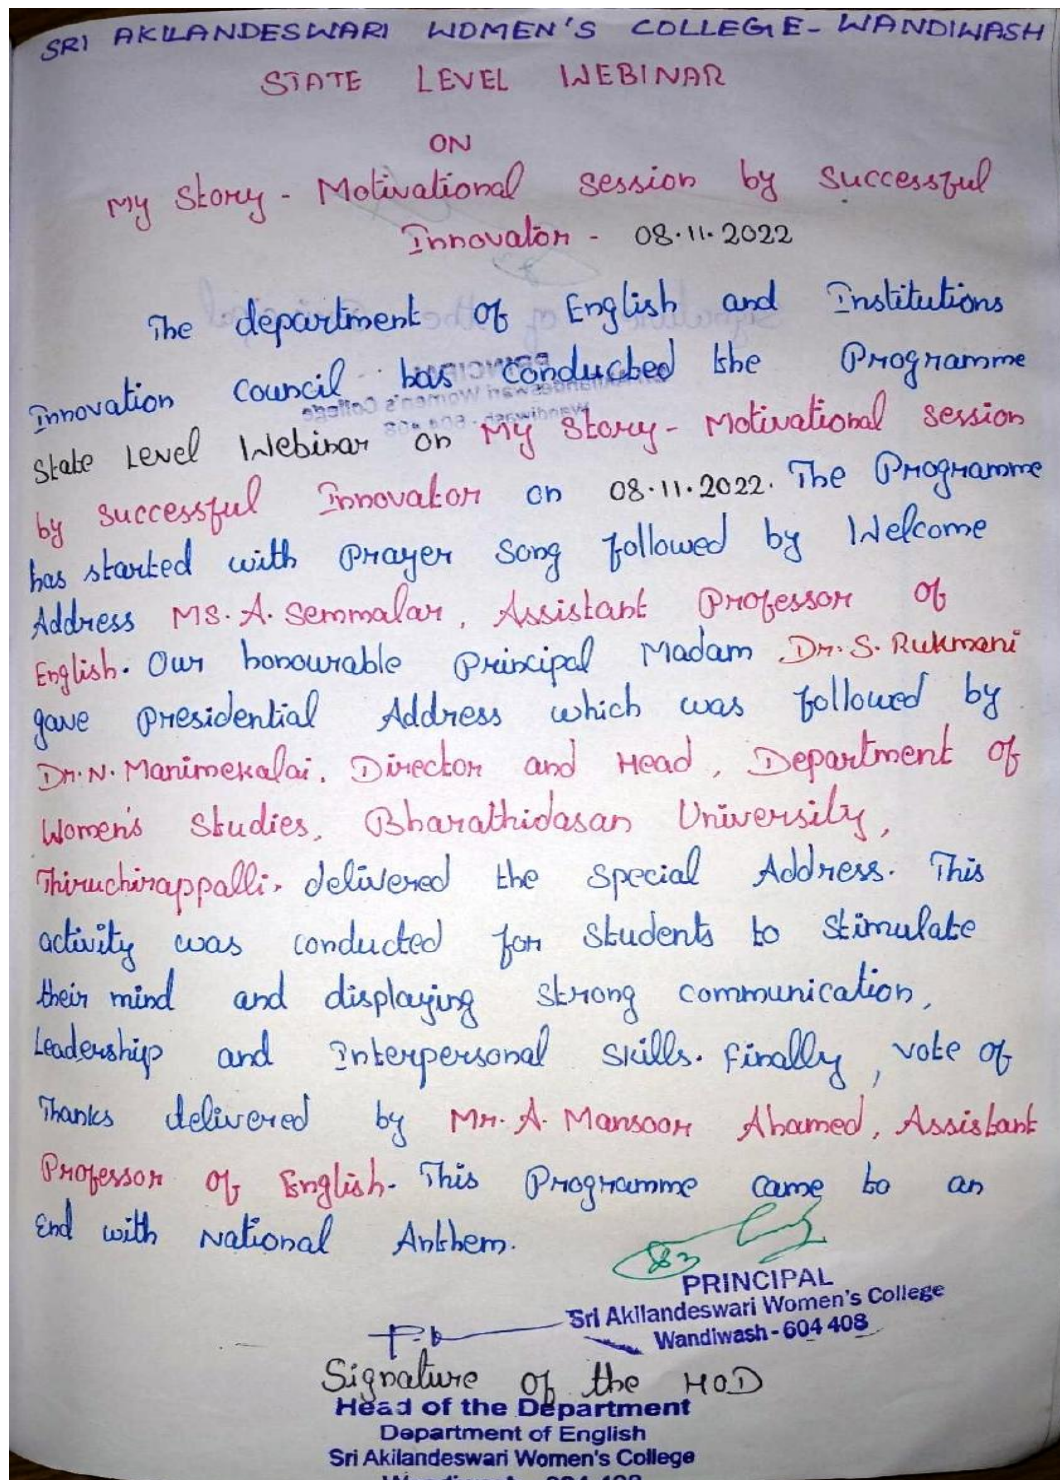 SRI AKILANDESWARI WOMEN'S COLLEGE - WANDIWASH
STATE LEVEL WEBINAR
ON
My Story - Motivational session by successful
Innovator - 08.11.2022
The department of English and Institutions
Innovation Council has conducted the Programme
State Level Webinar on My Story - Motivational session
by successful Innovator on 08.11.2022. The Programme
has started with Prayer Song followed by Welcome
Address Ms. A. Semmalar, Assistant Professor of
English. Our honourable Principal Madam Dr. S. Rukmani
gave Presidential Address which was followed by
Dr. N. Manimekalai, Director and Head, Department of
Women's Studies, Bharathidasan University,
Thiruchirappalli, delivered the special Address. This
activity was conducted for students to stimulate
their mind and displaying strong communication,
Leadership and Interpersonal skills. Finally, vote of
Thanks delivered by Mr. A. Mansoor Ahamed, Assistant
Professor of English. This Programme came to an
End with National Anthem.
PRINCIPAL
Sri Akilandeswari Women's College
Wandiwash - 604 408
Signature of the HOD
Head of the Department
Department of English
Sri Akilandeswari Women's College